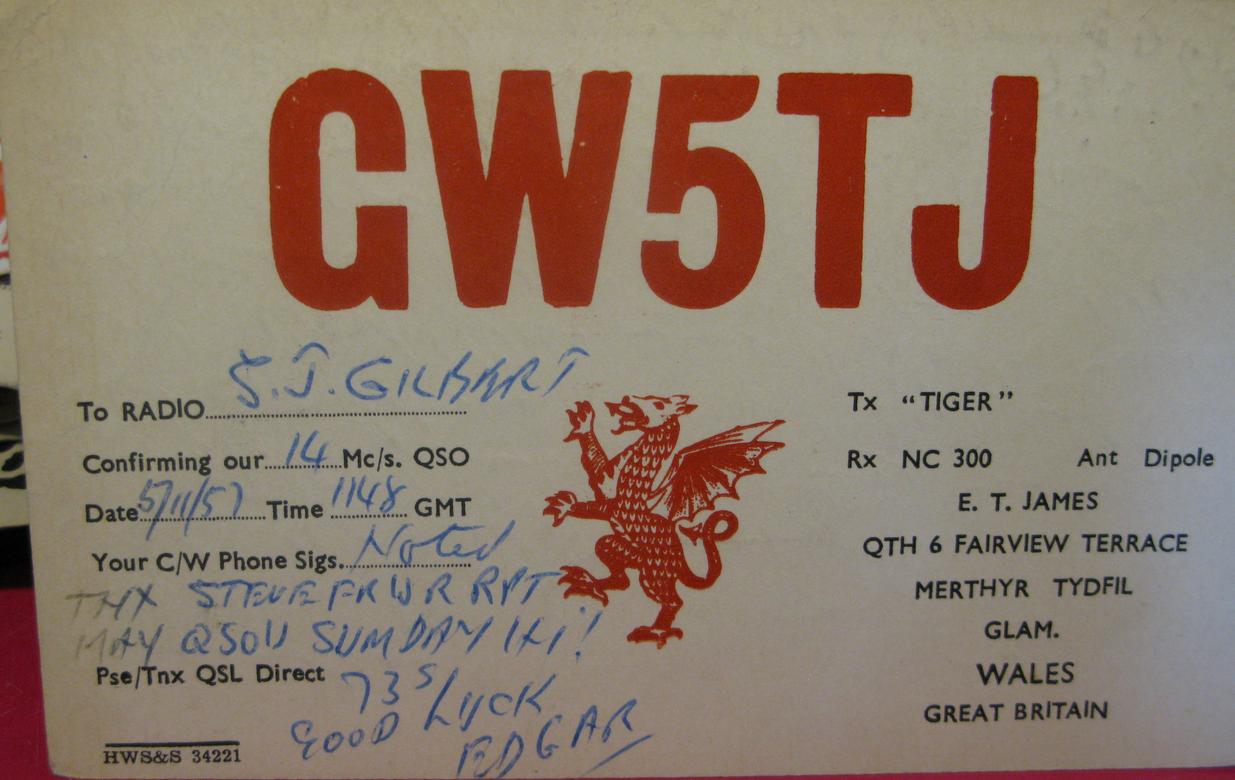 GW5TJ
To RADIO S. J. GILBERT
Confirming our 14 Mc/s. QSO
Date 5/11/57 Time 1148 GMT
Your C/W Phone Sigs. Noted
TNX STEVE FR UR RPT
MAY QSO U SUMDAY HI!
Pse/Tnx QSL Direct
73s
GOOD LUCK
EDGAR
HWS&S 34221
Tx "TIGER"
Rx NC 300 Ant Dipole
E. T. JAMES
QTH 6 FAIRVIEW TERRACE
MERTHYR TYDFIL
GLAM.
WALES
GREAT BRITAIN